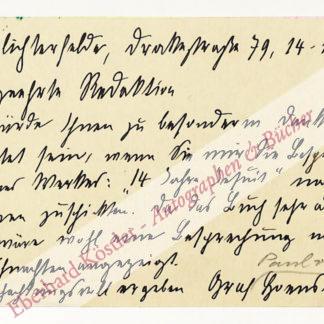 lichterfelde, Drakestraße 79, 14-
geehrte Redaktion
würde Ihnen zu besonderem Dank
tet sein, wenn Sie mir die Besp
es Werkes: "14 Jahre Jesuit" na
en zuschickten. Da das Buch sehr
wäre wohl eine Besprechung
hnachten angezeigt.
Paul
achtungsvoll ergeben Graf Hoens
Eberhard Köstler - Autographen & Bücher